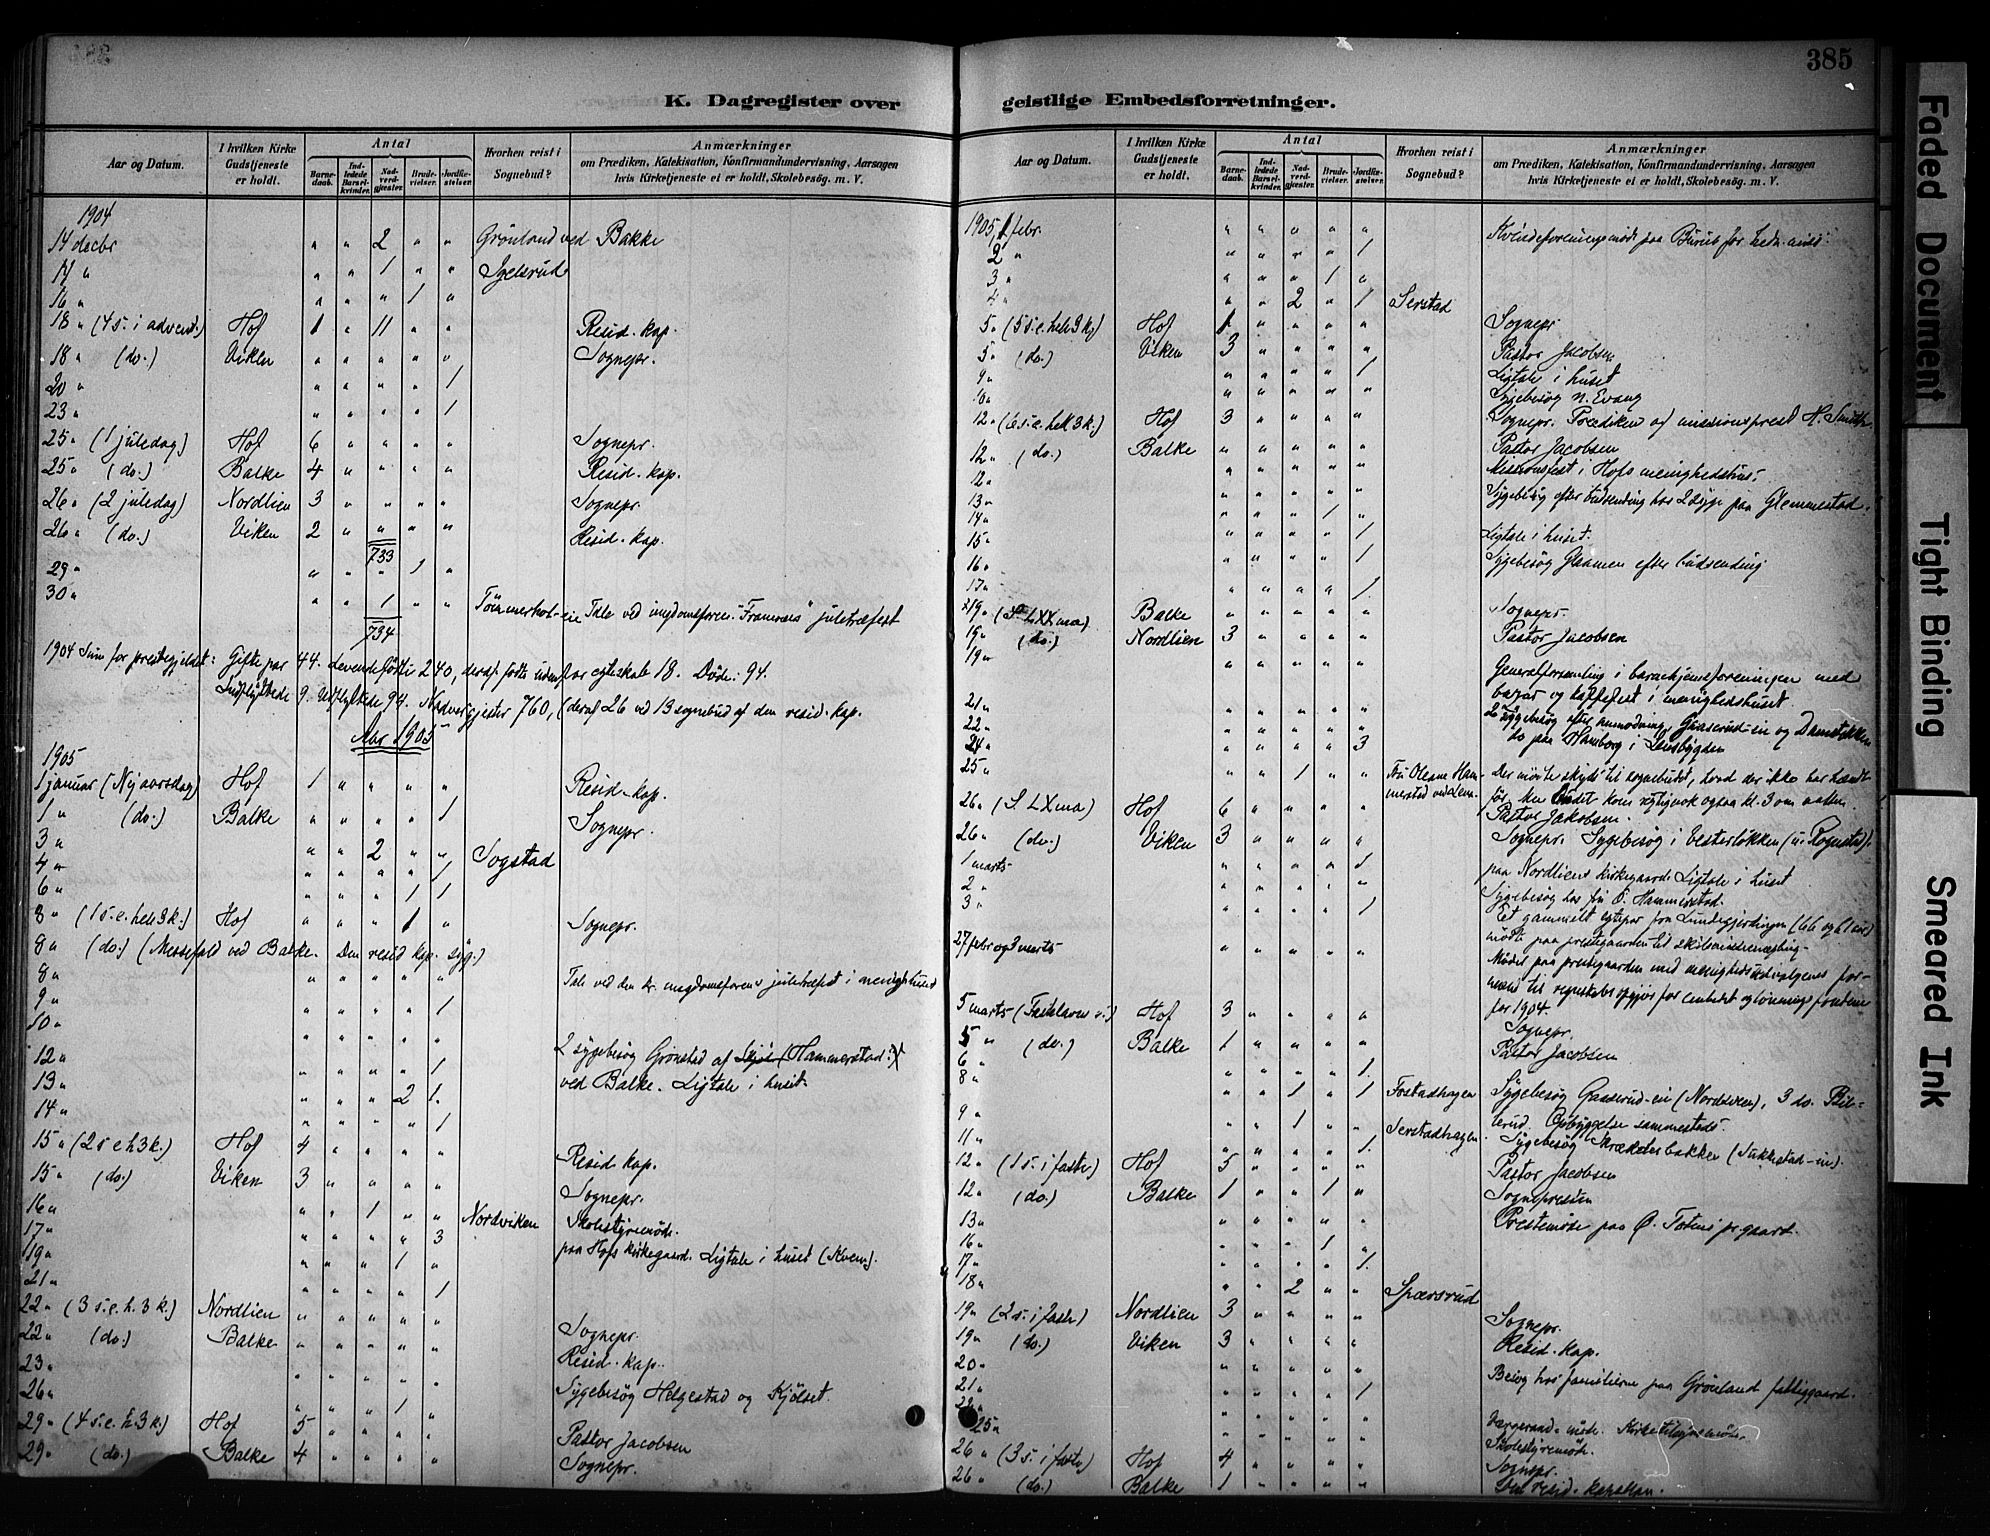 385
K. Dagregister over geistlige Embedsforretninger.
Aar og Datum. I hvilken Kirke Gudstjeneste er holdt. Antal Barnedaab. Indledede Barselkvinder. Nadverdgjester. Brudevielser. Jordfæstelser. Hvorhen reist i Sognebud? Anmærkninger om Prædiken, Katekisation, Konfirmandundervisning, Aarsagen hvis Kirketjeneste ei er holdt, Skolebesøg. m. V.
1904
14 decbr " " 2 " " Grönland ved Bakke
17 " " " 1 " "
16 " " " " 1 "
18 " (4 s. i advent.) Hof 1 " 11 " " Resid. kap.
18 " (do.) Viken " " " " " Sognepr.
20 " " " " " 1
23 " " " " " 1
25 " (1 juledag) Hof 6 " " " " Sognepr.
25 " (do.) Balke 4 " " " " Resid. kap.
26 " (2 juledag) Nordlien 3 " " " " Sognepr.
26 " (do.) Viken 2 " " " " Resid. kap.
733
29 " " " " 1 "
30 " " " 1 " " Tale ved ungdomsforen. "Framvars" juletræfest
734
1904 Sum for prestegjeldet: Gifte par 44. Levende födte 240, deraf födte udenfor egteskab 18. Döde: 94.
Indflyttede 9. Udflyttede 94. Nadvergjester 760, (deraf 26 ved 13 sognebud af den resid. kap.
Aar 1905
1905
1 januar (Nyaarsdag) Hof 1 " " " " Resid. kap.
1 " (do.) Balke " " " " 1 Sognepr.
3 " " " 2 " " Sogstad
4 " " " " " 1
6 " " " " 1 1
8 " (1 s. e. hell 3 k.) Hof " " " 1 " Sognepr.
8 " (do.) (Messefald ved Balke. Den resid. kap. syg.)
8 " " " " " " Tale ved den kr. ungdomsforens juletræfest i menighhuset
9 " " " " " 1
10 " " " " " "
12 " " " " " 1 2 sygebesøg Grönsted af (Hammerstad
13 " " " " 2 1 ved Balke. Ligtale i huset
14 " " " " " 1
15 " (2 s e h 3 k.) Hof 4 " " " " Resid. kap.
15 " (do) Viken 3 " " " " Sognepr.
16 " " " 1 " " Nordviken Skolestyremöde.
17 " " " " " 3 paa Hofs kirkegaard. Ligtale i huset
19 " " " " 1 "
21 " " " " " 1
22 " (3 s. e. h. 3 k.) Nordlien " " " " " Sognepr.
22 " (do.) Balke " " " " " Resid. kap.
23 " " " " " " Sygebesøg Helgestad og Kjölset.
26 " " " " 1 "
29 " (4 s. e. h. 3 k.) Hof 5 " " " " Pastor Jacobsen
29 " (do.) Balke 4 " " " " Sognepr.
Aar og Datum. I hvilken Kirke Gudstjeneste er holdt. Antal Barnedaab. Indledede Barselkvinder. Nadverdgjester. Brudevielser. Jordfæstelser. Hvorhen reist i Sognebud? Anmærkninger om Prædiken, Katekisation, Konfirmandundervisning, Aarsagen hvis Kirketjeneste ei er holdt, Skolebesøg. m. V.
1905, 1 febr. " " " " " Kvindeforeningsmöde paa for hedn.
2 " " " " " 1
3 " " " " 1 "
4 " " " 2 " 1 Serstad
5 " (5 s. e. hell 3 k.) Hof 1 " " " " Sognepr
5 " (do.) Viken 3 " " " " Pastor Jacobsen
9 " " " " " 1 Ligtale i huset
10 " " " " " " Sygebesøg n. Evang
12 " (6 s. e. hell 3 k.) Hof 3 " " " " Sognepr. Prædiken af missionsprest H. Smith.
12 " (do.) Balke " " " " " Pastor Jacobsen
12 " " " " " " Missionsfest i Hofs menighedshus.
13 " " " " " " Sygebesøg efter budsending hos 2 syge paa Glemmestad.
14 " " " " 1 "
15 " " " " " 1 Ligtale i huset.
16 " " " " " 1 Sygebesøg efter budsending
17 " " " " " 1
19 " (S. LXX ma) Balke " " " " " Sognepr.
19 " (do.) Nordlien 3 " " " " Pastor Jacobsen
19 " " " " " " Generalforsamling i barnehjemsforeningen med
basar og kaffefest i menighedshuset.
21 " " " " " "
22 " " " " " " 2 sygebesøg efter anmodning, Gaaserud-eie og
24 " " " " " 3 do paa Hamborg i Lensbygden
25 " " " 1 " " Fru Oleane Hammerstad ved Lena. Der mödte skyds til sognebudet, hvad der ikke har hændt
för. Men budet kom rigtignok ogsaa kl. 3 om natten.
26 " (S. LX ma) Hof 6 " " " " Pastor Jakobsen.
26 " (do.) Viken 3 " " " " Sognepr. Sygebesøg i Vesterløkken (u. Rognstad).
1 marts " " " " 1 paa Nordliens kirkegaard. Ligtale i huset
2 " " " " " " Sygebesøg hos fru O. Hammerstad.
3 " " " " " 1 Et gammelt egtepar fra Lundsgjerdingen (66 og 61 aar)
27 febr og 3 marts " " " " " mödte paa prestegaarden til skilsmissemægling.
Mödet paa prestegaarden med menighedsudvalgenes for-
mænd til regnskabsopgjör for embedet og lönningsfondene
for 1904.
5 marts (Fastelavns s.) Hof 3 " " " " Sognepr.
5 " (do.) Balke 1 " " " " Pastor Jacobsen
6 " " " " " 1
8 " " " 1 " 1 Fostadhagen Sygebesøg Gaaserud-eie (Nordlien), 3 do. Bil-
9 " " " 1 " " Serstadhagen erud. Opbyggelse sammesteds.
11 " " " " " 1 Sygebesøg Skræddersbakken
12 " (1 s. i faste) Hof 5 " " " " Pastor Jacobsen
12 " (do.) Balke 1 " " 1 " Sognepresten
13 " " " " " " Prestemöde paa Ø. Totens pr.gaard.
16 " " " " 1 "
17 " " " " " 1
18 " " " 2 " " Spærsrud
19 " (2 s. i faste) Nordlien 3 " " " " Sognepr.
19 " (do.) Viken 3 " " " " Resid. kap.
20 " " " " " "
21 " " " " " 1 Besøg hos familierne paa Grönland fattiggaard.
22 " " " " " "
25 " " " " " " Vergeraadsmöde. Kirketilsynsmöde.
Skolestyremöde.
26 " (3 s. i faste) Hof 4 " " " " Sognepr.
26 " (do.) Balke 1 " " " " Den resid. kapellan.
Faded Document
Tight Binding
Smeared Ink